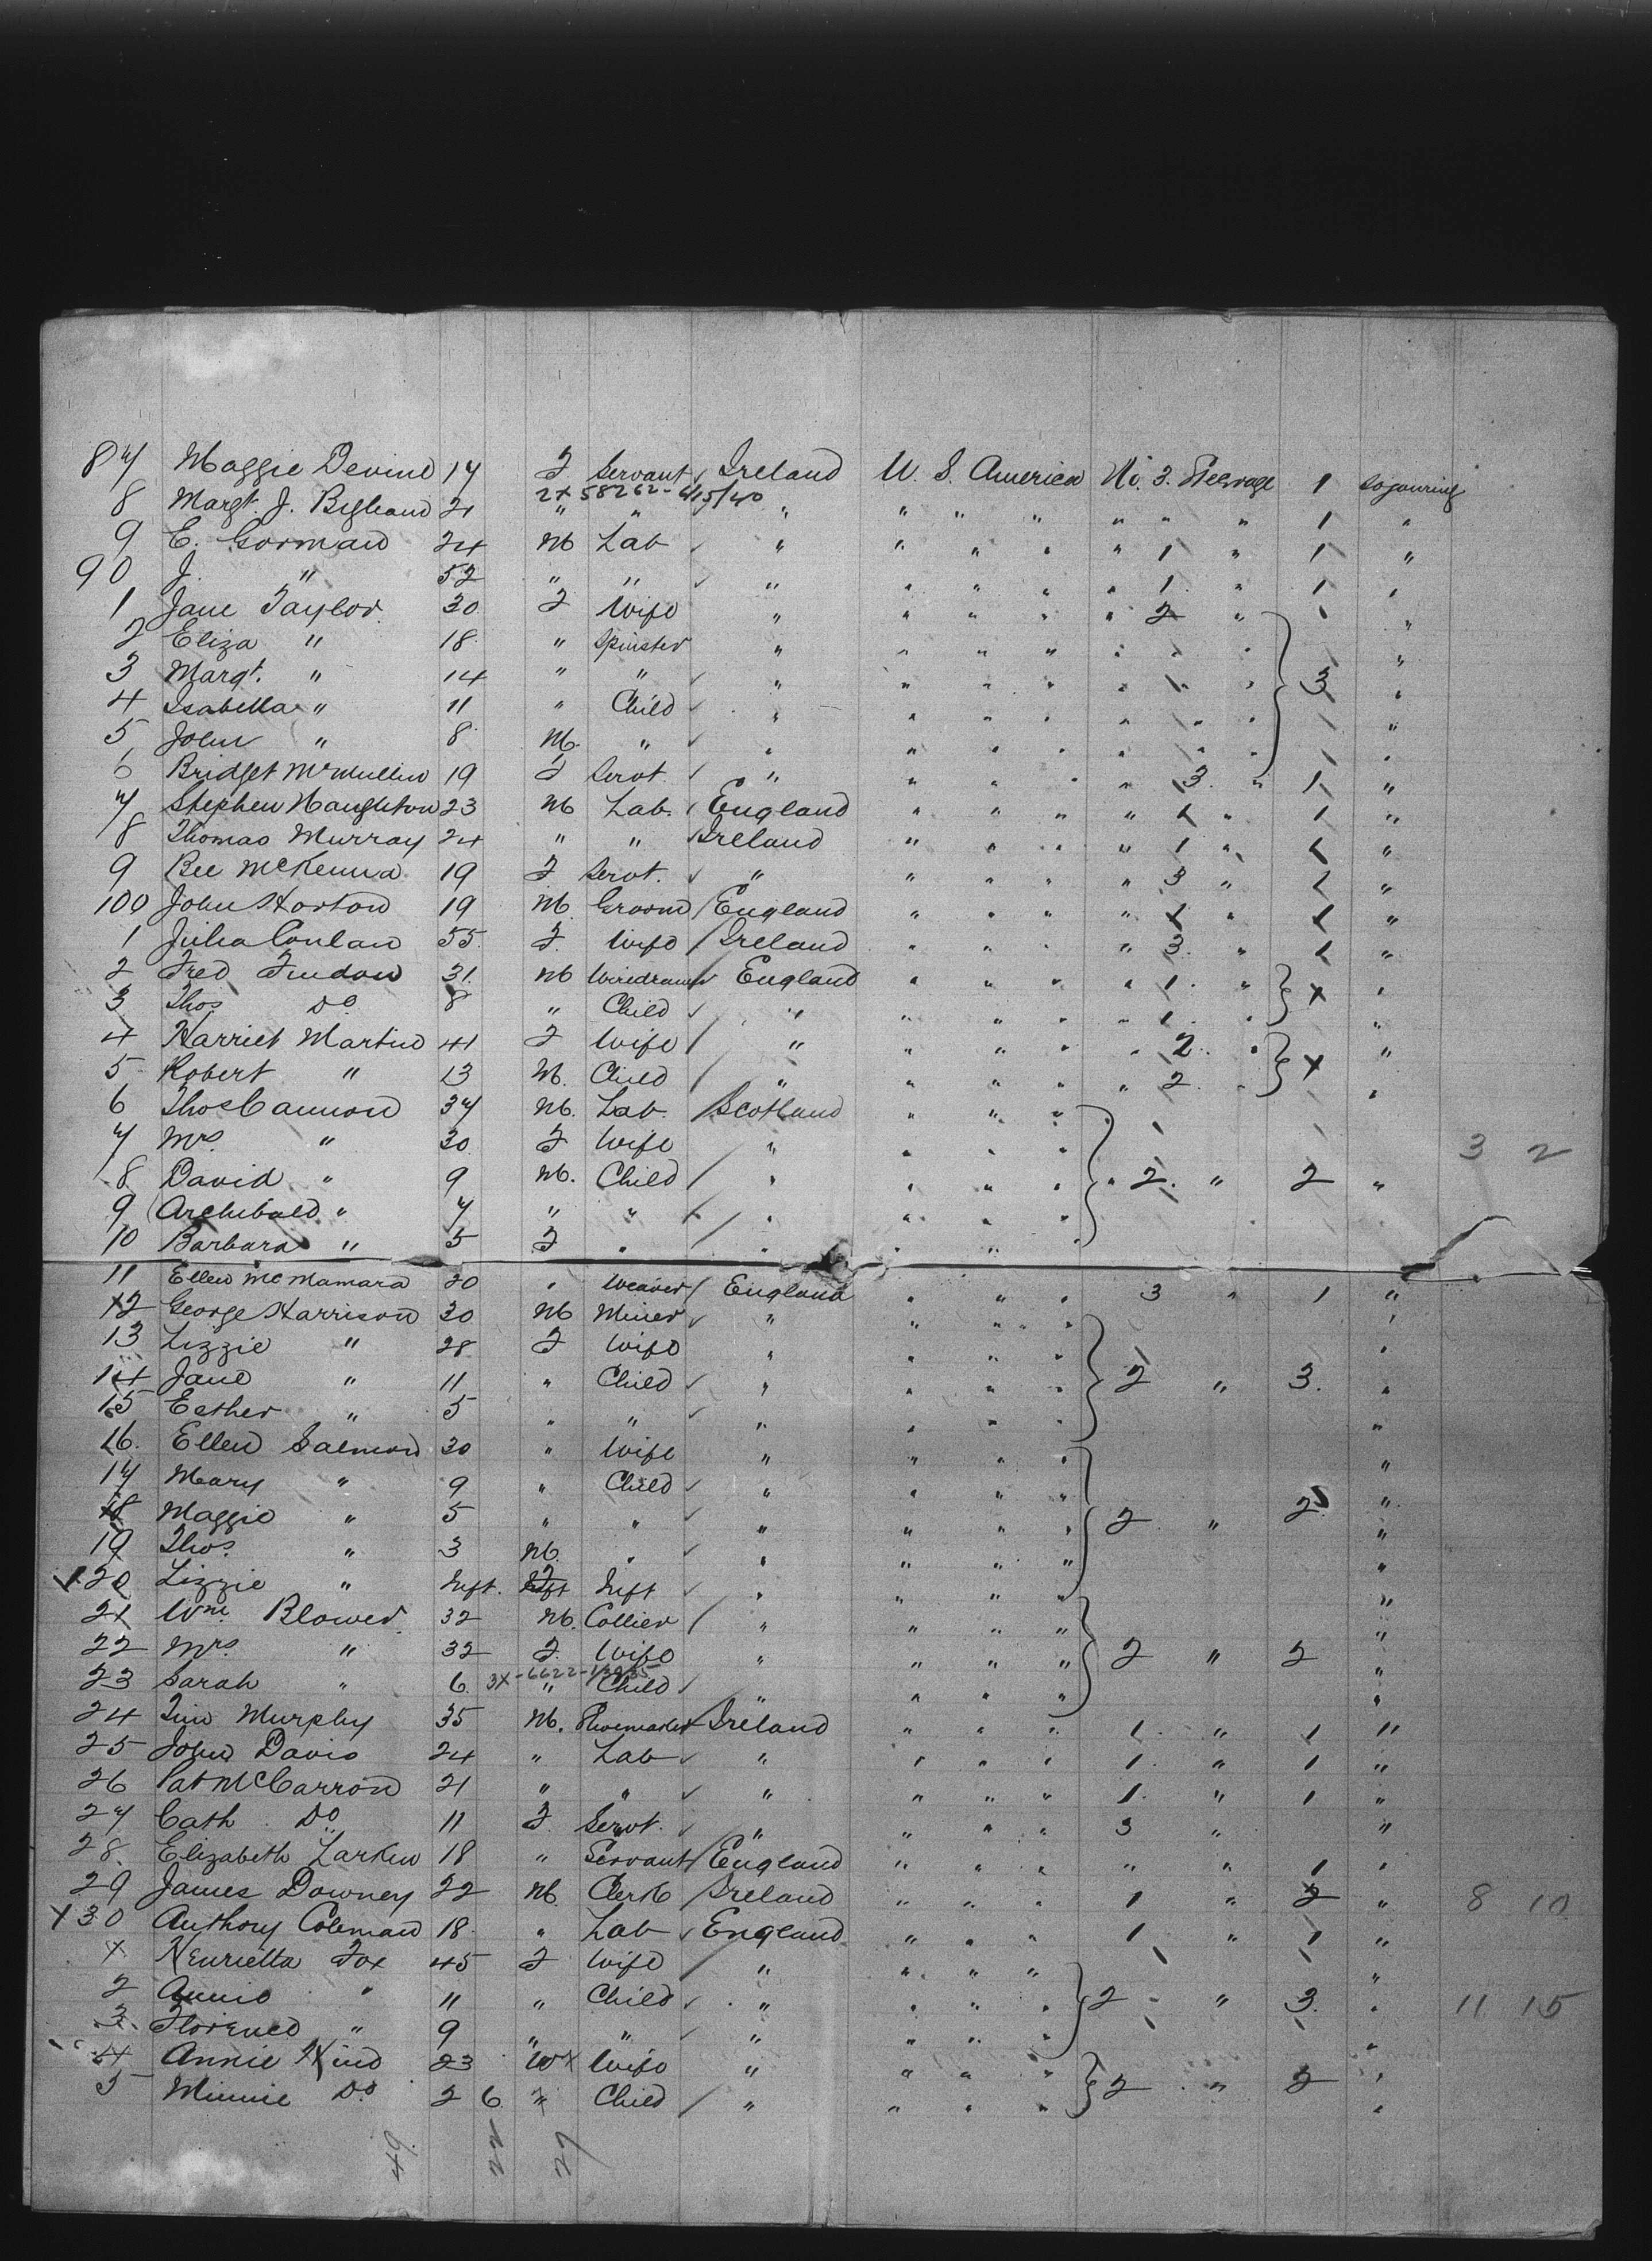 87 Maggie Devine 17 F Servant Ireland U. S. America No. 3. Steerage 1 Sojouring
2x58262-6/15/40
8 Margt. J. 21 " " " " " " " " " 1 "
9 E. Gorman 24 M Lab " " " " " 1 " 1 "
90 J. " 52 " " " " " " " 1 " 1 "
1 Jane Taylor 30 F Wife " " " " " 2 " "
2 Eliza " 18 " Spinster " " " " " " "
3 Margt. " 14 " " " " " " " " 3 "
4 Isabella " 11 " Child " " " " " " " "
5 John " 8 M. " " " " " " " "
6 Bridget McMullin 19 F Servt. " " " " " 3. " 1 "
7 Stephen Naughton 23 M Lab. England " " " " 1 " 1 "
8 Thomas Murray 24 " " Ireland " " " " 1 " 1 "
9 Bee McKenna 19 F Servt. " " " " " 3 " 1 "
100 John Horton 19 M. Groom England " " " " 1 " 1 "
1 Julia Conlan 55 F. Wife Ireland " " " " 3. " 1 "
2 Fred 31. M Wiredrawer England " " " " 1. " "
3 Thos Do 8 " Child " " " " " 1. " "
4 Harriet Martin 41 F Wife " " " " " 2. " "
5 Robert " 13 M. Child " " " " " 2. " "
6 Thos Cannon 37 M. Lab. Scotland " " "
7 Mrs " 30 F Wife " " " " 3 2
8 David " 9 M. Child " " " " " 2. " 2 "
9 Archibald " 7 " " " " " "
10 Barbara " 5 F " " " " "
11 Ellen McMamara 20 " Weaver England " " " 3 " 1 "
12 George Harrison 30 M Miner " " " " "
13 Lizzie " 28 F Wife " " " " "
14 Jane " 11 " Child " " " " 2 " 3. "
15 Esther " 5 " " " " " " "
16. Ellen Salmon 30 " Wife " " " " "
17 Mary " 9 " Child " " " " "
18 Maggie " 5 " " " " " " 2 " 2 "
19 Thos. " 3 M. " " " " " "
120 Lizzie " Inft. F Inft " " " " "
21 Wm. Blower 32 M. Collier " " " " "
22 Mrs " 32 F. Wife " " " " 2 " 2 "
3x-6622-
23 Sarah " 6 " Child " " " " "
24 Tim Murphy 35 M. Shoemaker Ireland " " " 1. " 1 "
25 John Davis 24 " Lab " " " " 1. " 1 "
26 Pat McCarron 21 " " " " " " 1. " 1 "
27 Cath Do 11 F. Servt. " " " " 3 " "
28. Elizabeth Larkin 18 " Servant England " " " " " 1 "
29 James Downey 22 M. Clerk Ireland " " " 1 " 2 " 8 10
130 Anthony Coleman 18 " Lab England " " " 1 " 1 "
Henrietta Fox 45 F Wife " " " " "
2 Annie " 11 " Child " " " " 2 " 3. " 11 15
3. Florence " 9 " " " " " " "
4 Annie Hind 23 Wife " " " " "
5 Minnie Do 2 6 " Child " " " " 2 " 2 "
49 22 27